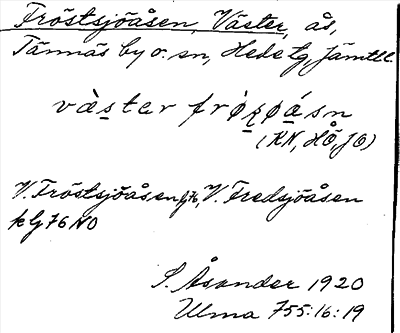 Fröstsjöåsen, Väster, ås,
Tännäs by o. sn, Hede tg, Jämtl l.
väster frøʂøåsn
(KN, HÖ, JO)
V. Fröstsjöåsen fj 76, V. Fredsjöåsen
k lj 76 NO
S. Åsander 1920
Ulma 755:16:19